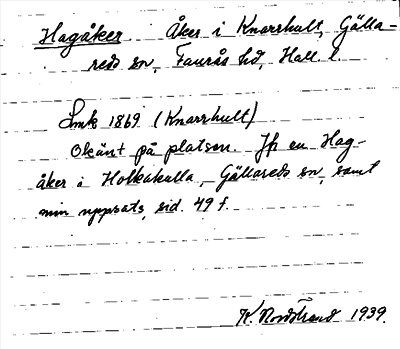 Hagåker Åker i Knarrhult, Gälla-
reds sn, Faurås hd, Hall. l.
Lmk 1869 (Knarrhult)
Okänt på platsen. Jfr en Hag-
åker i Holkakulla, Gällareds sn, samt
min uppsats, sid. 49 f.
K. Nordstrand 1939.